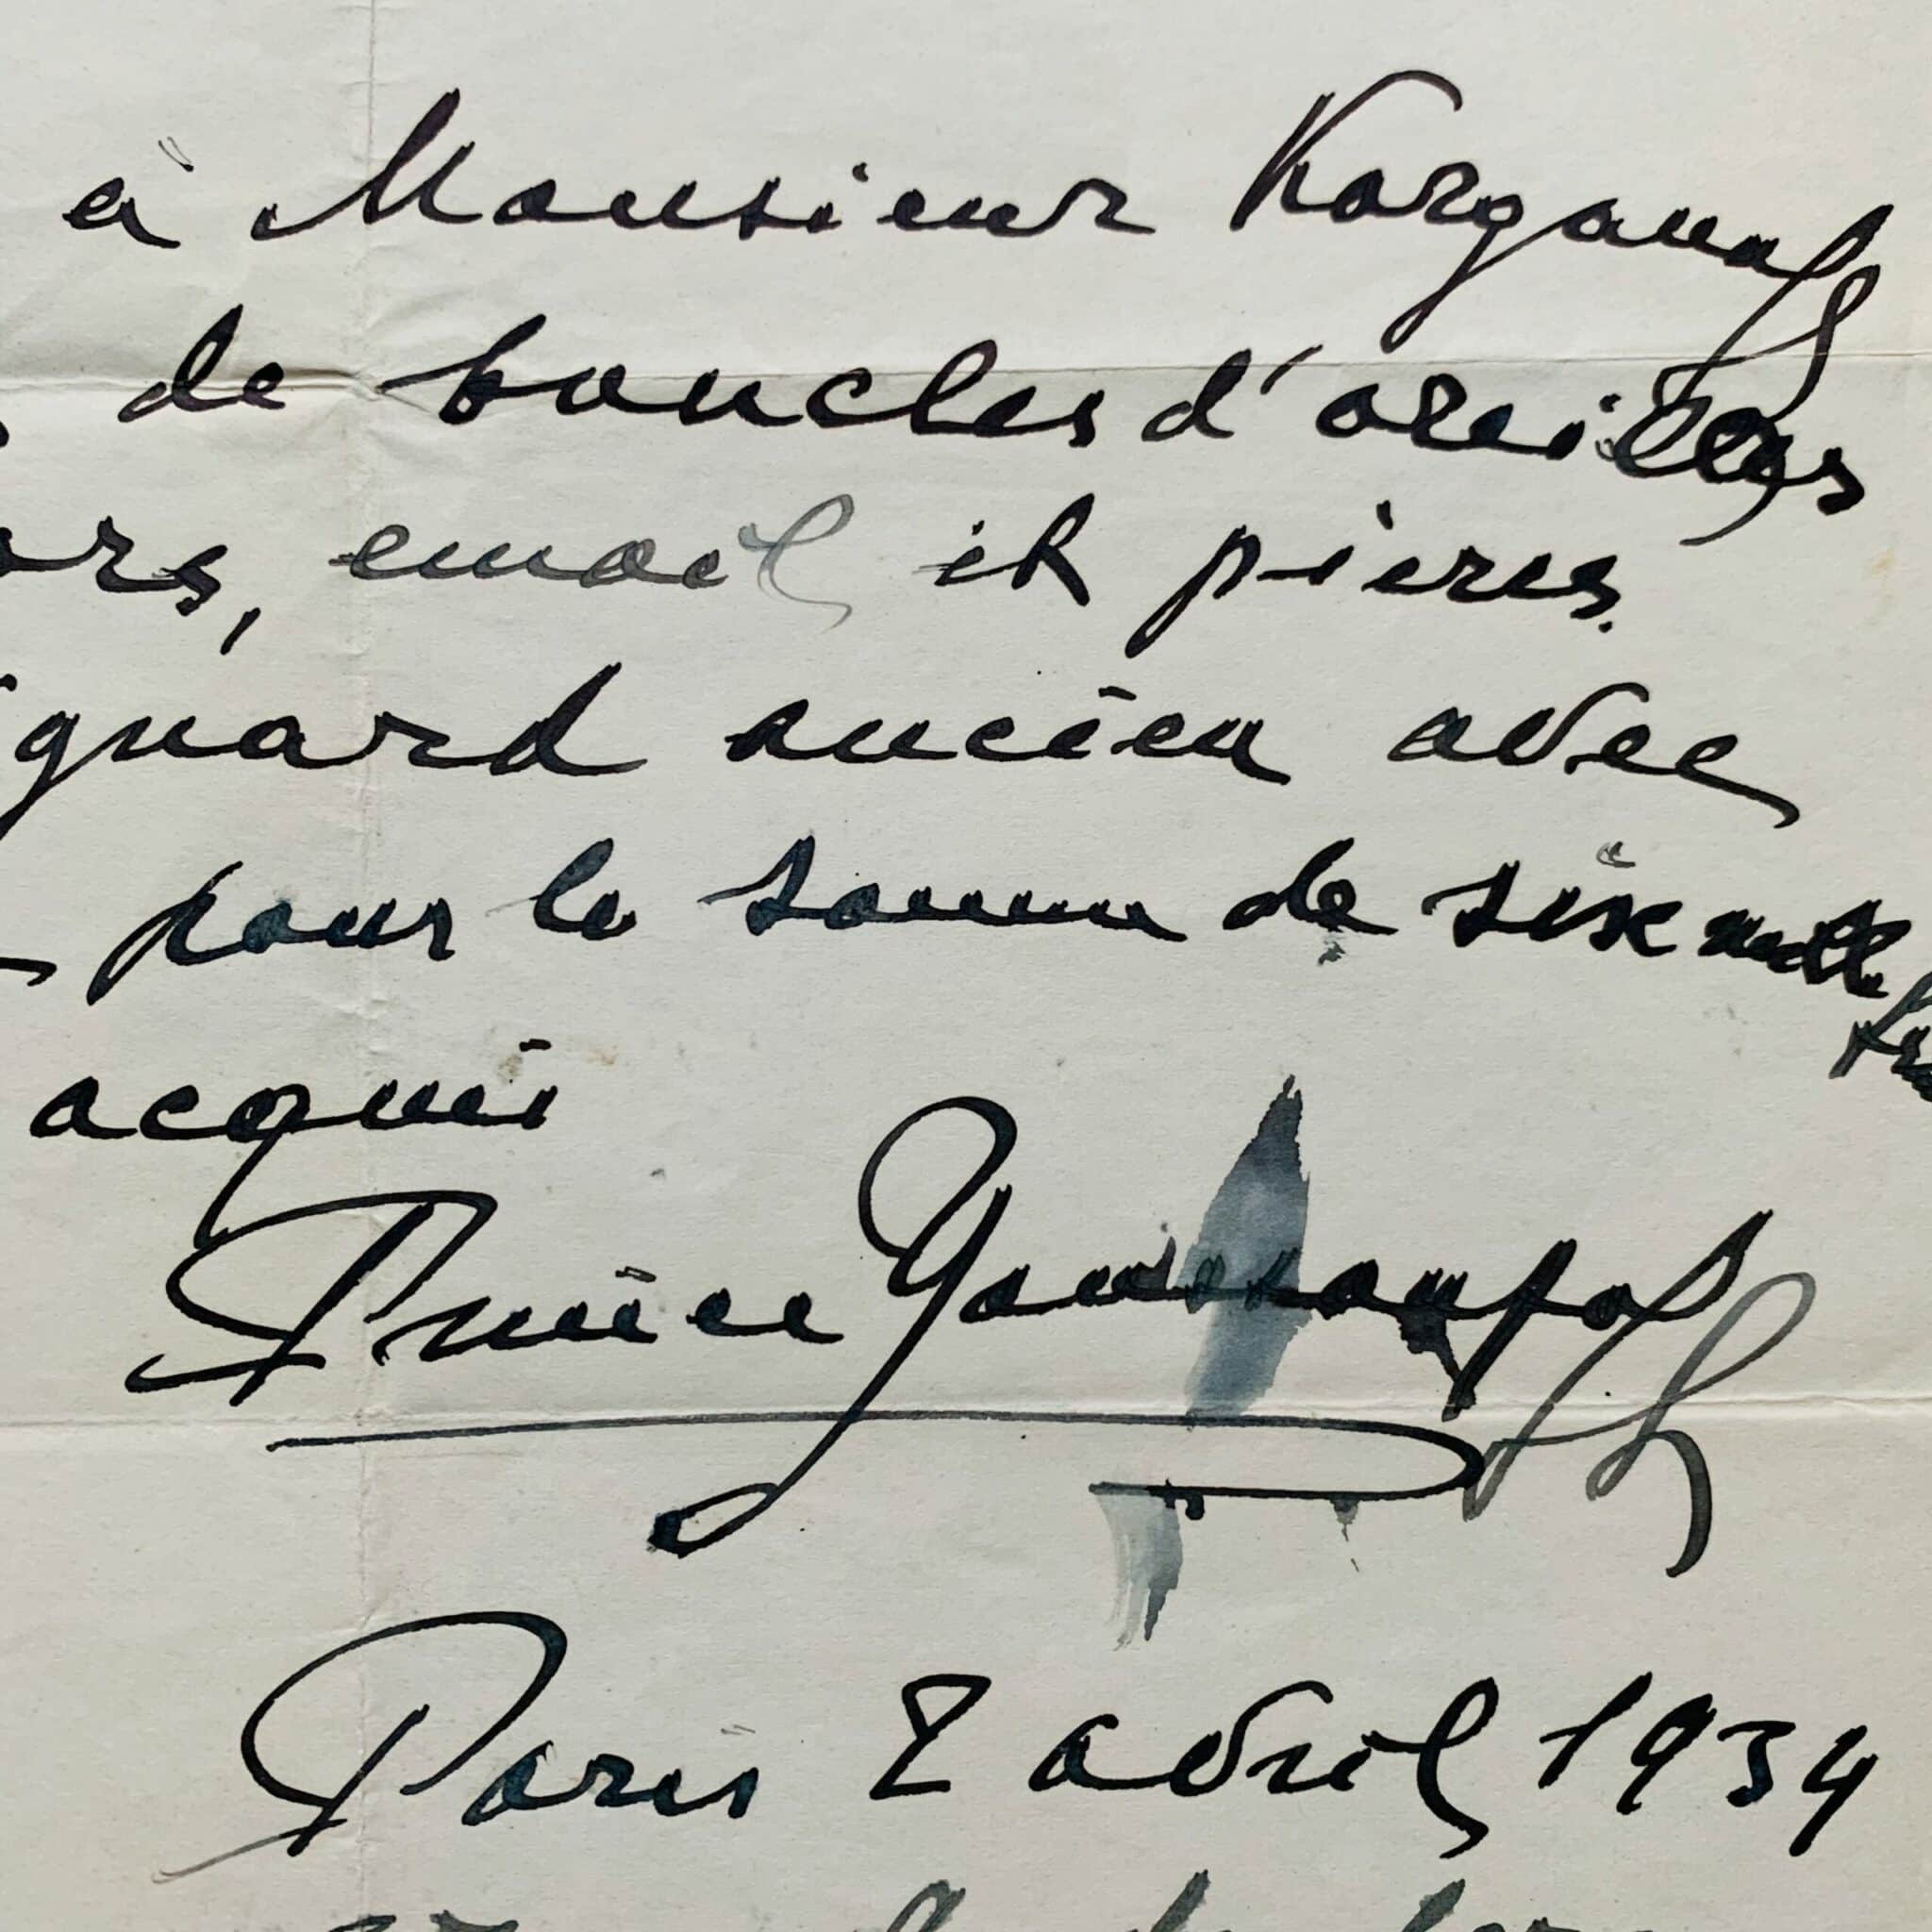 à Monsieur Korganoff
de boucles d'oreilles
ors, email et pieres.
ignard ancien avec
pour la somme de six mille
acquis
Prince Youssoupoff
Paris 2 avril 1934